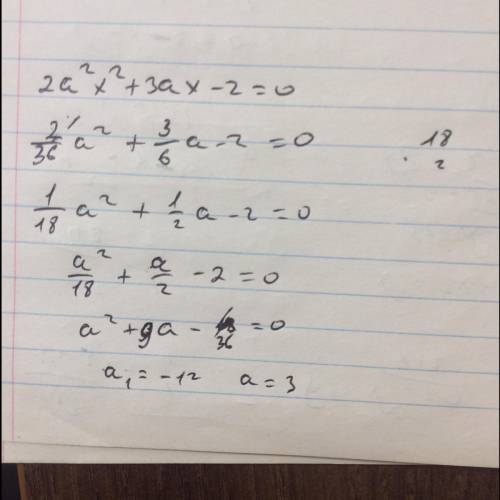 2a²x² + 3ax - 2 = 0
2/36 a² + 3/6 a - 2 = 0
18
2
1/18 a² + 1/2 a - 2 = 0
a²/18 + a/2 - 2 = 0
a² + 9a - 36 = 0
a₁ = -12 a = 3